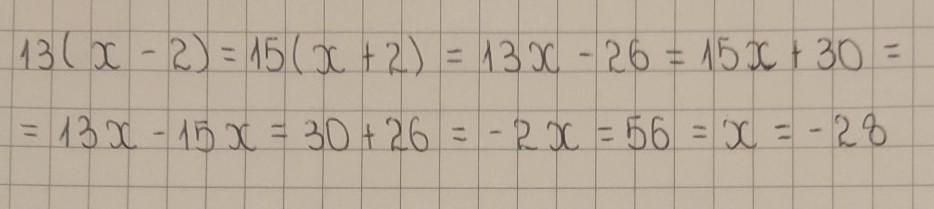 13(x - 2) = 15(x + 2) = 13x - 26 = 15x + 30 =
= 13x - 15x = 30 + 26 = -2x = 56 = x = -28